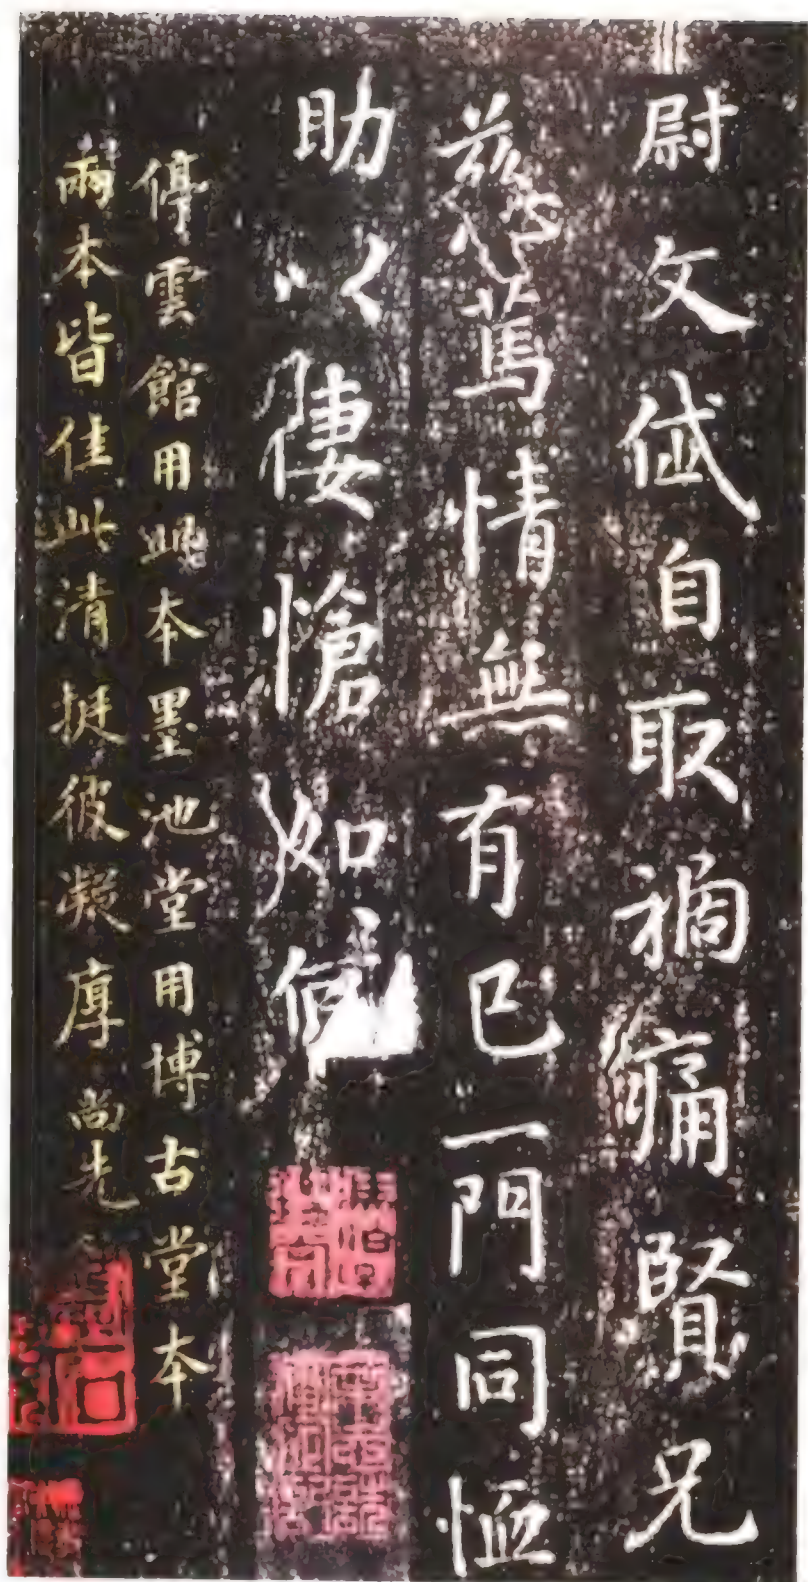 尉文佷自取禍痛賢兄
慈篤情無有已一門同恤
助以悽愴如何
停雲館用此本墨池堂用博古堂本
兩本皆佳此清挺彼凝厚尚先